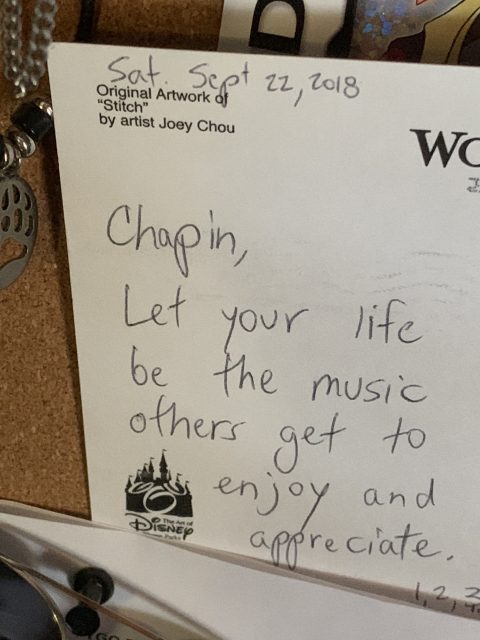 Sat. Sept 22, 2018
Original Artwork of
"Stitch"
by artist Joey Chou
Chapin,
Let your life
be the music
others get to
enjoy and
appreciate.
The Art of
Disney
Parks
1, 2, 3